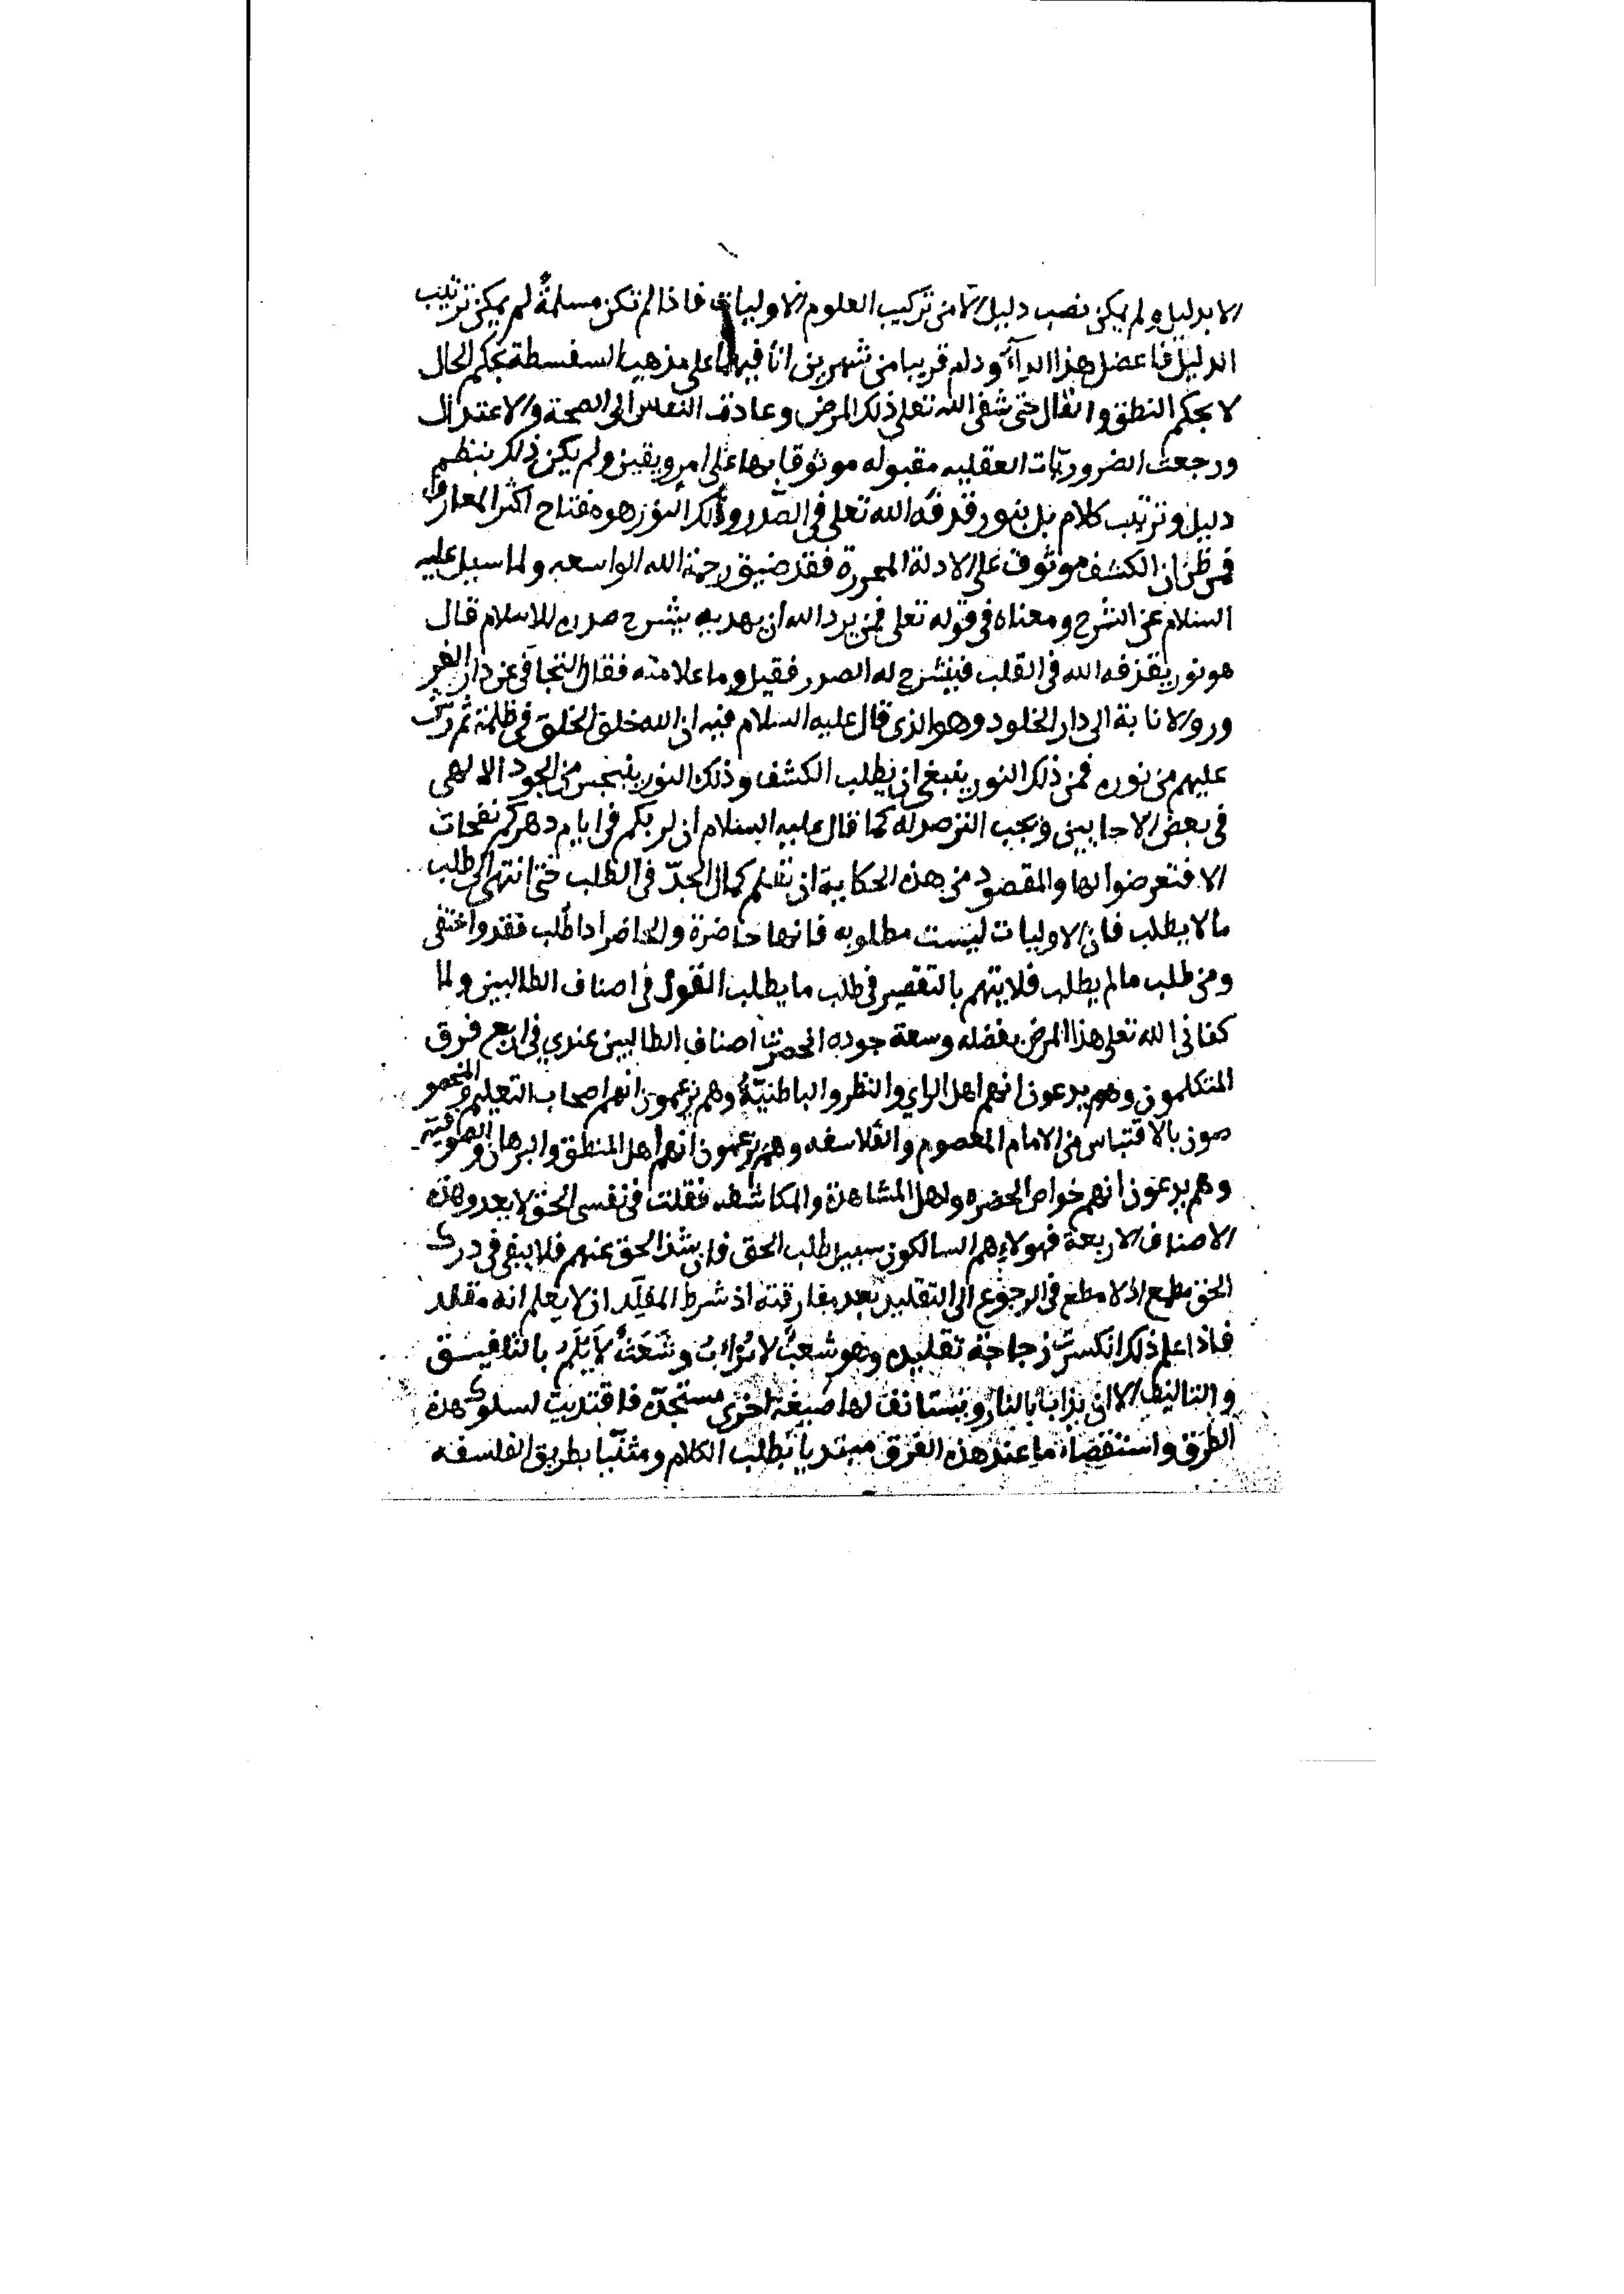 الا بدليل ولم يمكن نصب دليل الا من تركيب العلوم الاوليات فاذا لم تكن مسلمة لم يمكن ترتيب
الدليل فاعضل هذا الداء ودام قريبا من شهرين انا فيهما على مذهب السفسطة بحكم الحال
لا بحكم النطق والمقال حتى شفى الله تعلى ذلك المرض وعادت النفس الى الصحة والاعتدال
ورجعت الضروريات العقليه مقبوله موثوقا بها على امر ويقين ولم يكن ذلك بنظم
دليل وترتيب كلام بل بنور قذفه الله تعلى في الصدر وذلك النور هو مفتاح اكثر المعارف
فمن ظن ان الكشف موثوف على الادلة المحررة فقد ضيق رحمة الله الواسعه ولما سيل عليه
السلام عن الشرح ومعناه في قوله تعلى فمن يرد الله ان يهديه يشرح صدره للاسلام قال
هو نور يقذفه الله في القلب فينشرح له الصدر فقيل وما علامته فقال التجافي عن دار الغر
ور والانابة الى دار الخلود وهو الذي قال عليه السلام فيه ان الله خلق الخلق في ظلمة ثم رش
عليهم من نوره فمن ذلك النور ينبغي ان يطلب الكشف وذلك النور ينبجس من الجود الالهي
في بعض الاحايين ويجب الترصد له كما قال عليه السلام ان لربكم في ايام دهركم نفحات
الا فتعرضوا لها والمقصود من هذه الحكاية ان تعلم كمال الجدّ في الطلب حتى انتهى الى طلب
ما لا يطلب فان الاوليات ليست مطلوبه فانها حاضرة والحاضر اذا طلب فقد واختفى
ومن طلب مالم يطلب فلا يتهم بالتقصير في طلب ما يطلب القول في اصناف الطالبين ولما
كفاني الله تعلى هذا المرض بفضله وسعة جوده انحصرت اصناف الطالبين عندي في اربع فرق
المتكلمون وهم يدعون انهم اهل الراي والنظر والباطنيّة وهم يزعمون انهم اصحاب التعليم والمخصو
صون بالاقتباس من الامام المعصوم والفلاسفه وهم يزعمون انهم اهل المنطق والبرهان والصوفية
وهم يدعون انهم خواص الحضره واهل المشاهدة والمكاشفه فقلت في نفسي الحق لا يعدو هذه
الاصناف الاربعة فهولاء هم السالكون سبيل طلب الحق فان شذ الحق عنهم فلا يبقى في درك
الحق مطمع اذ لا مطمع في الرجوع الى التقليد بعد مفارقته اذ شرط المقلّد ان لا يعلم انه مقلد
فاذا علم ذلك انكسرت زجاجة تقليده وهو شعبٌ لا يرأب وشَعَثٌ لا يلم بالتلفيق
والتاليف الا ان يذاب بالنار ويستانف لها صيغة اخرى مستجدّه فاقتديت لسلوك هذه
الطرق واستقصاء ما عند هذه الفرق مبتديا بطلب الكلام ومثنّيا بطريق الفلسفه